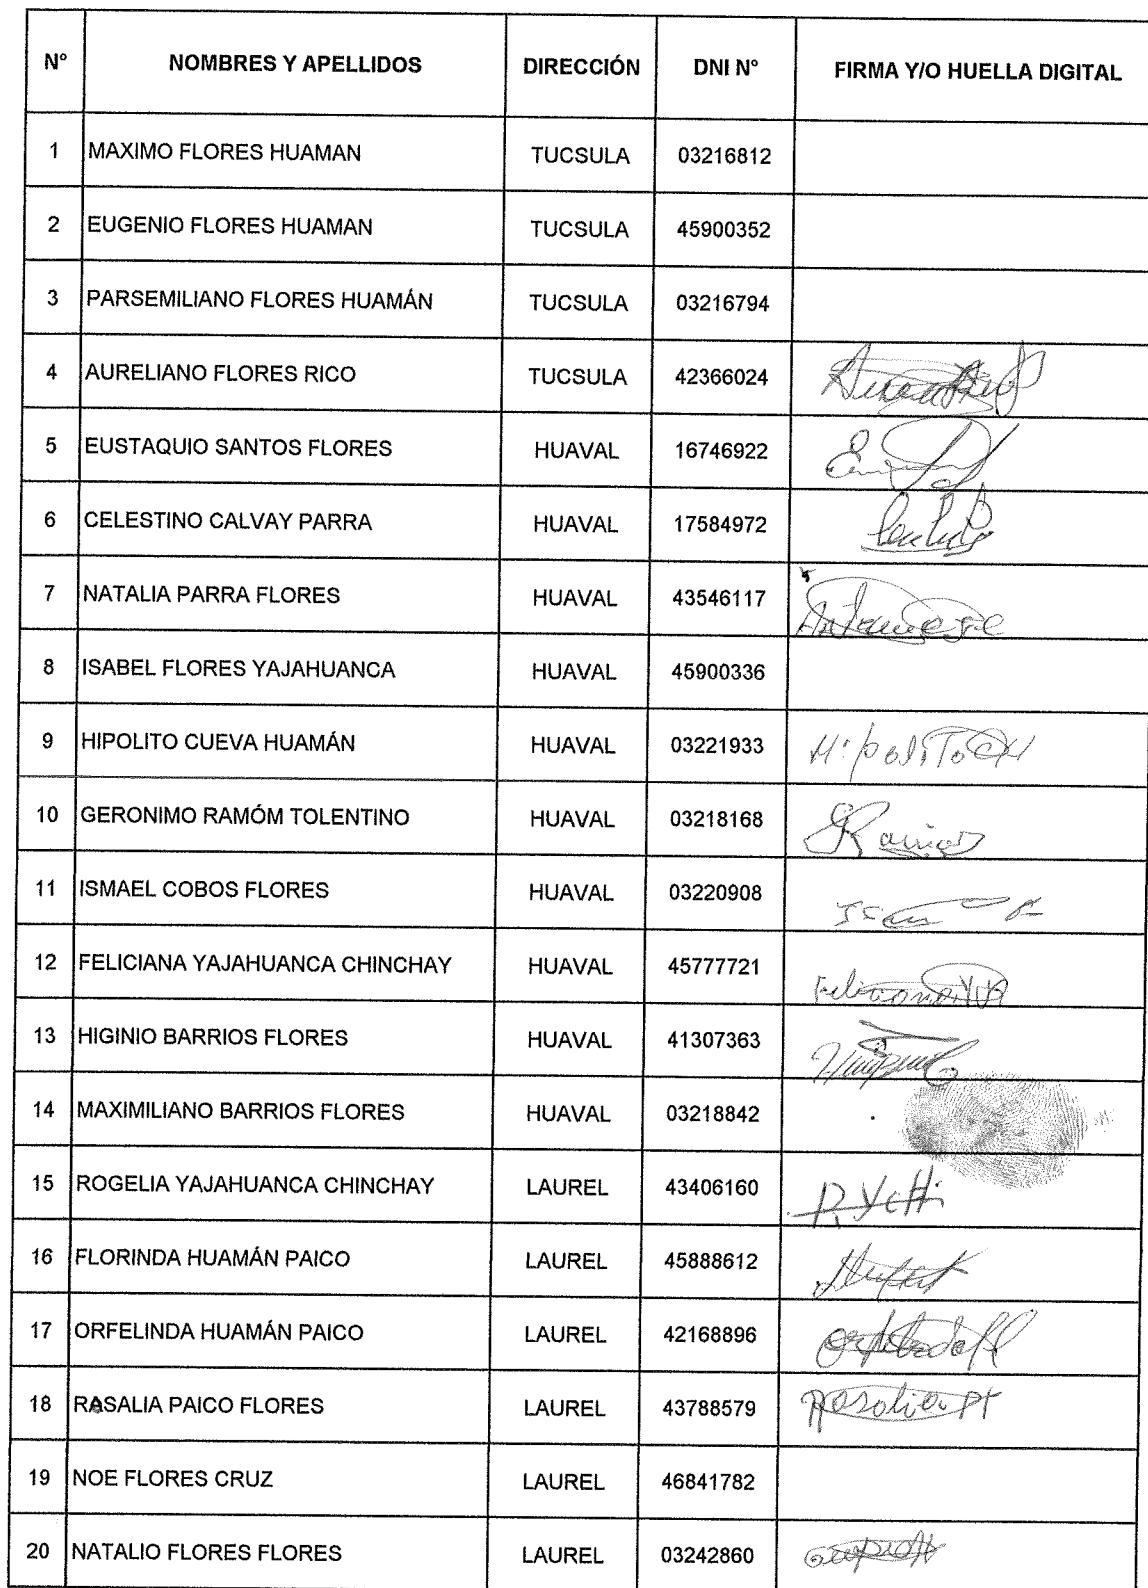 N° NOMBRES Y APELLIDOS DIRECCIÓN DNI N° FIRMA Y/O HUELLA DIGITAL
1 MAXIMO FLORES HUAMAN TUCSULA 03216812
2 EUGENIO FLORES HUAMAN TUCSULA 45900352
3 PARSEMILIANO FLORES HUAMÁN TUCSULA 03216794
4 AURELIANO FLORES RICO TUCSULA 42366024
5 EUSTAQUIO SANTOS FLORES HUAVAL 16746922
6 CELESTINO CALVAY PARRA HUAVAL 17584972
7 NATALIA PARRA FLORES HUAVAL 43546117
8 ISABEL FLORES YAJAHUANCA HUAVAL 45900336
9 HIPOLITO CUEVA HUAMÁN HUAVAL 03221933 HipoliTo CH
10 GERONIMO RAMÓM TOLENTINO HUAVAL 03218168
11 ISMAEL COBOS FLORES HUAVAL 03220908
12 FELICIANA YAJAHUANCA CHINCHAY HUAVAL 45777721
13 HIGINIO BARRIOS FLORES HUAVAL 41307363
14 MAXIMILIANO BARRIOS FLORES HUAVAL 03218842
15 ROGELIA YAJAHUANCA CHINCHAY LAUREL 43406160
16 FLORINDA HUAMÁN PAICO LAUREL 45888612
17 ORFELINDA HUAMÁN PAICO LAUREL 42168896
18 RASALIA PAICO FLORES LAUREL 43788579 Rosalia PF
19 NOE FLORES CRUZ LAUREL 46841782
20 NATALIO FLORES FLORES LAUREL 03242860